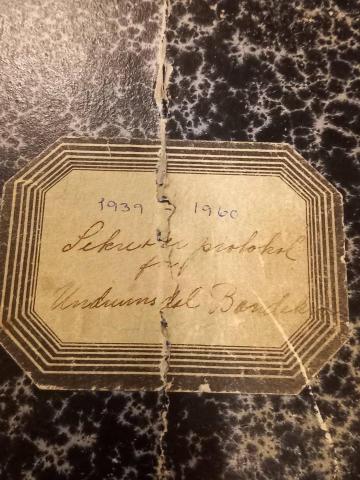 1939 - 1960
Sekretær protokol
for
Undrumsdal Bondek